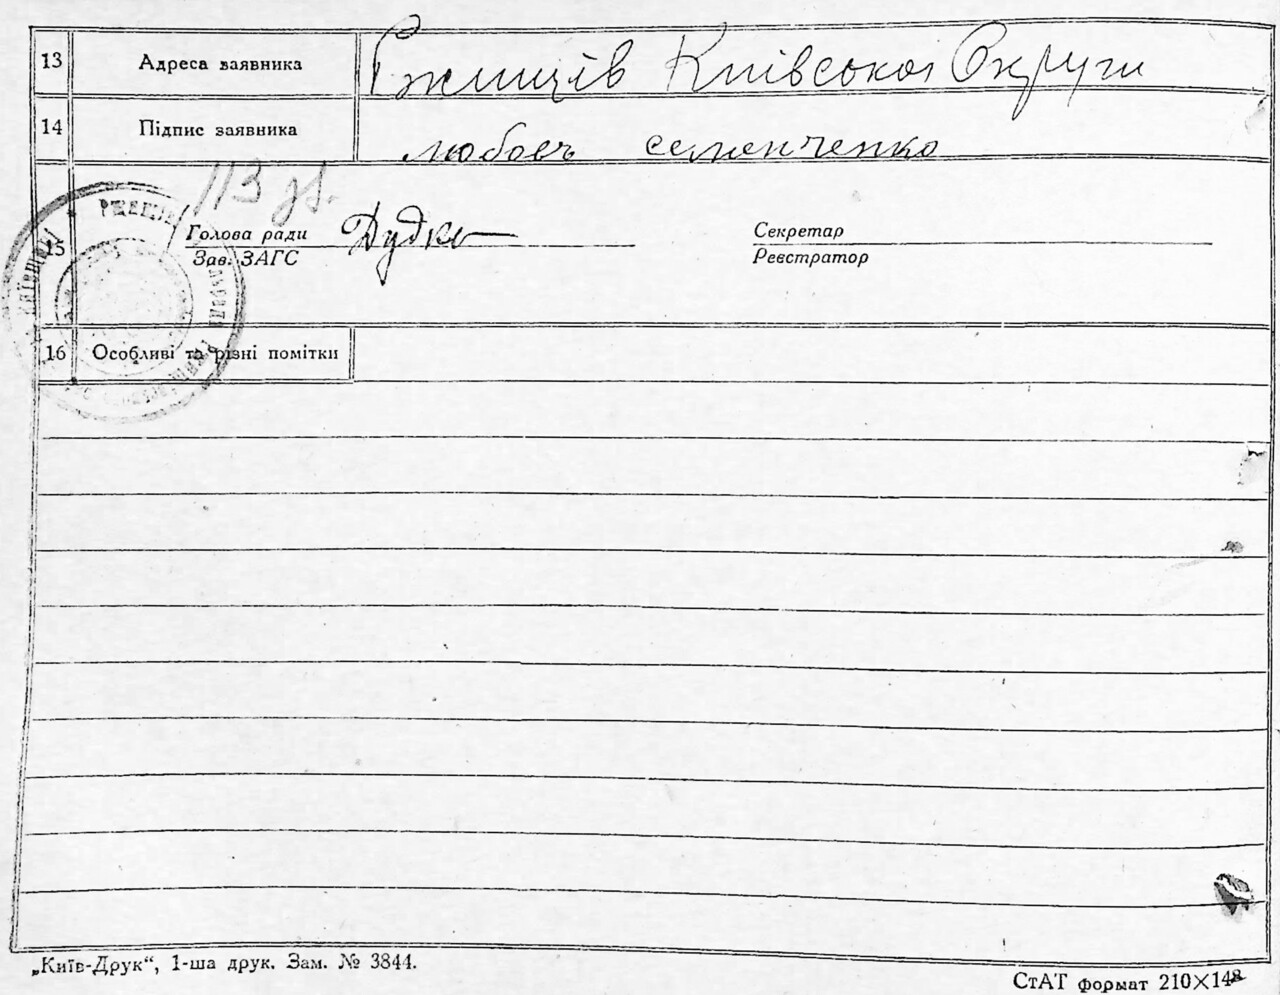 13 Адреса заявника Ржищів Київської Округи
14 Підпис заявника любовь семенченко
113
15 Голова ради Дудко Секретар
Зав. ЗАГС Реєстратор
16 Особливі та різні помітки
„Київ-Друк“, 1-ша друк. Зам. № 3844.
СтАТ формат 210×148